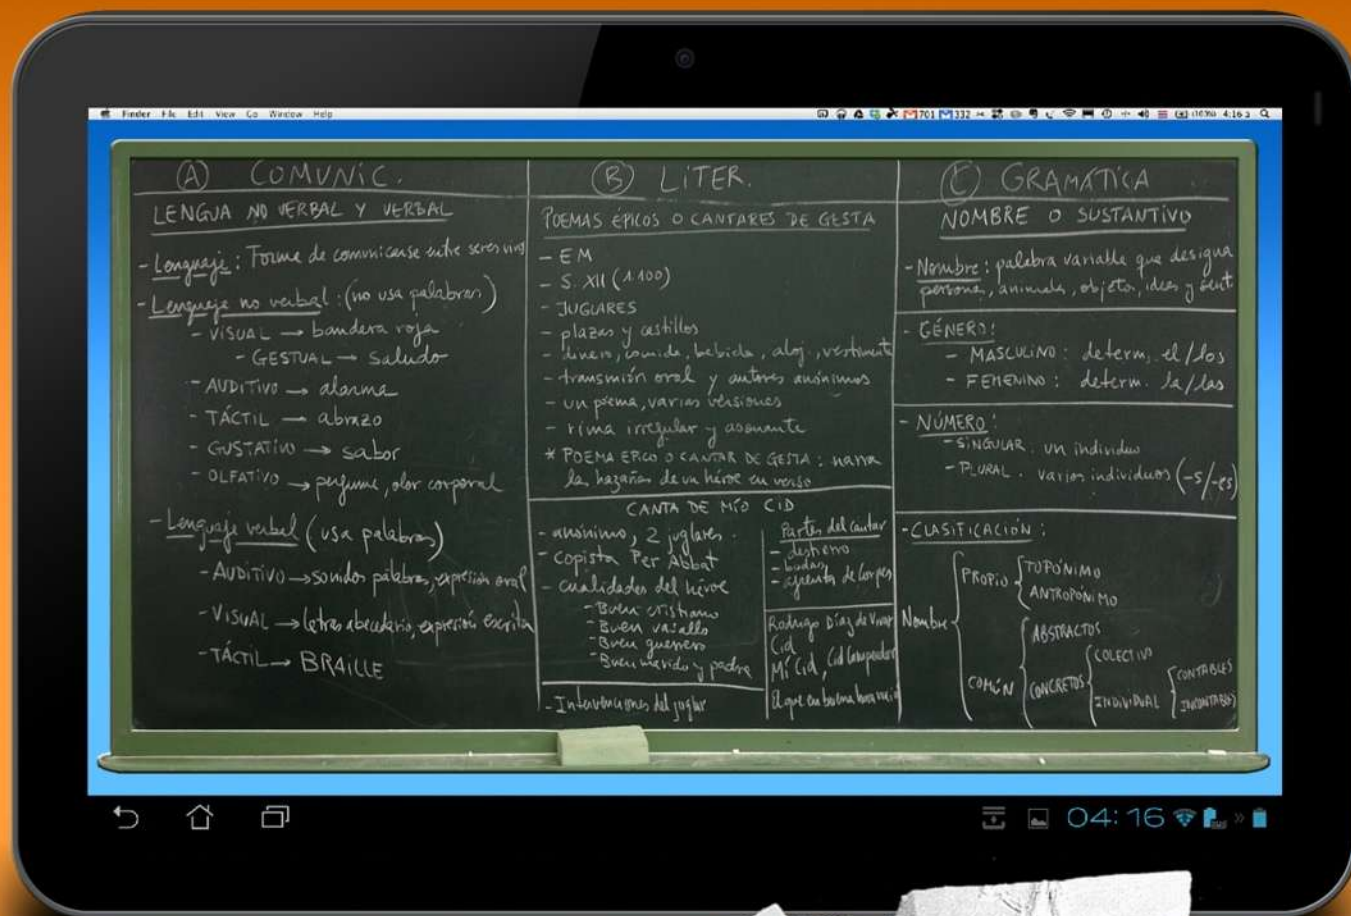 Finder File Edit View Go Window Help
701 332 4:16
A COMUNIC.
LENGUA NO VERBAL Y VERBAL
- Lenguaje: Forma de comunicarse entre seres vivos
- Lenguaje no verbal: (no usa palabras)
- VISUAL → bandera roja
- GESTUAL → saludo
- AUDITIVO → alarma
- TÁCTIL → abrazo
- GUSTATIVO → sabor
- OLFATIVO → perfume, olor corporal
- Lenguaje verbal (usa palabras)
- AUDITIVO → sonidos palabras, expresión oral
- VISUAL → letras abecedario, expresión escrita
- TÁCTIL → BRAILLE
B LITER.
POEMAS ÉPICOS O CANTARES DE GESTA
- EM
- S. XII (1.100)
- JUGLARES
- plazas y castillos
- dinero, comida, bebida, aloj., vestimenta
- transmión oral y autores anónimos
- un poema, varias versiones
- rima irregular y asonante
* POEMA EPICO O CANTAR DE GESTA: narra
las hazañas de un héroe en verso
CANTA DE MÍO CID
- anónimo, 2 juglares.
- copista Per Abbat
- cualidades del héroe
- Buen cristiano
- Buen vasallo
- Buen guerrero
- Buen marido y padre
- Intervenciones del juglar
Partes del cantar
- destierro
- bodas
- afrenta de Corpes
Rodrigo Díaz de Vivar
Cid
Mí Cid, Cid Campeador
El que en buena hora nació
C GRAMÁTICA
NOMBRE O SUSTANTIVO
- Nombre: palabra variable que designa
persona, animales, objeto, ideas y sent
- GÉNERO:
- MASCULINO: determ. el/los
- FEMENINO: determ. la/las
- NÚMERO:
- SINGULAR. un individuo
- PLURAL. varios individuos (-s/-es)
- CLASIFICACIÓN:
Nombre
PROPIO
TOPÓNIMO
ANTROPÓNIMO
COMÚN
ABSTRACTOS
CONCRETOS
COLECTIVO
INDIVIDUAL
CONTABLES
INCONTABLES
04:16